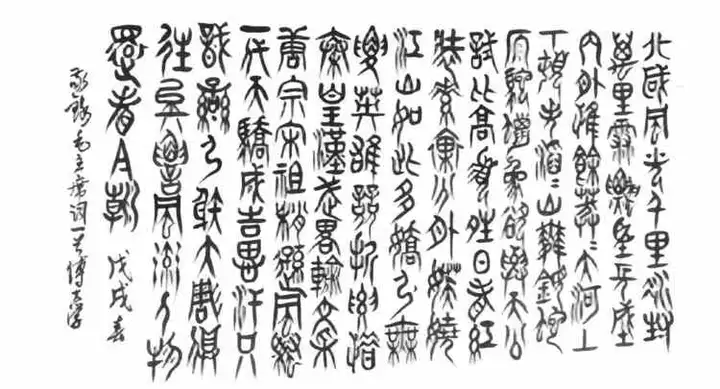 北國風光千里冰封
萬里雪飄望長城
內外惟餘莽〻大河上
下頓失滔〻山舞銀蛇
原馳蠟象欲與天公
試比高須晴日看紅
裝素裹分外妖嬈
江山如此多嬌引無
數英雄競折腰惜
秦皇漢武略輸文采
唐宗宋祖稍遜風騷
一代天驕成吉思汗只
識彎弓射大雕俱
往矣數風流人物
還看今朝 戊戌春
敬錄毛主席詞一首傅